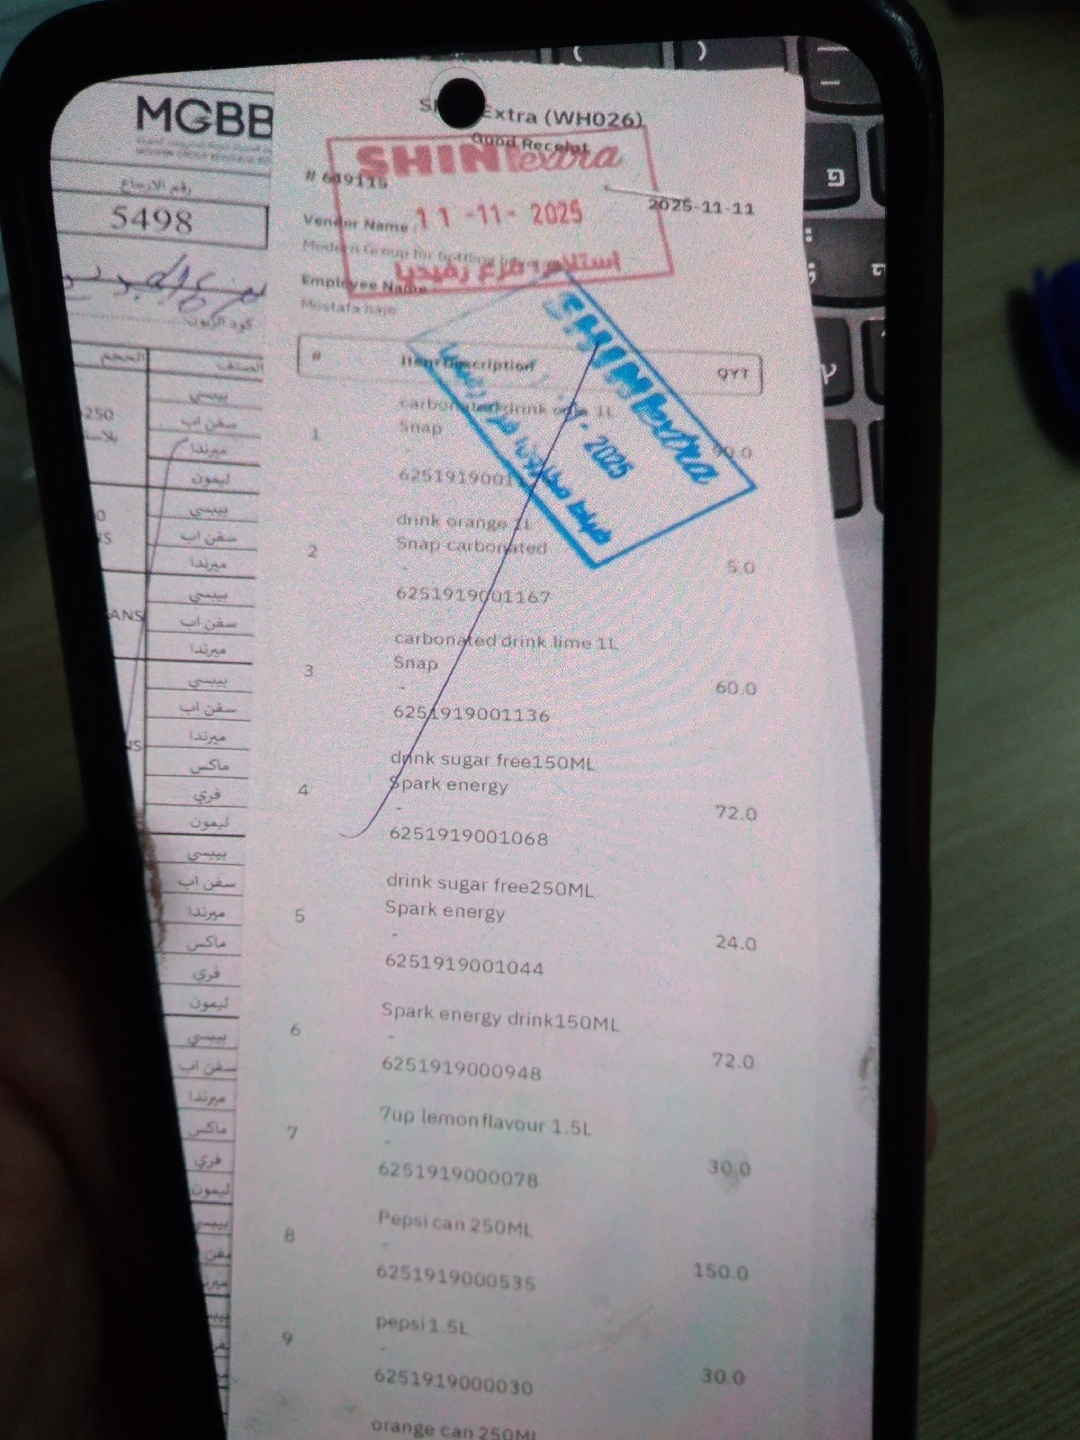 MGBB
رقم الارجاع
5498
كود الزبون
الحجم
الصنف
250
بيبسي
سفن اب
ميرندا
ليمون
بيبسي
سفن اب
ميرندا
بيبسي
سفن اب
ميرندا
بيبسي
سفن اب
ميرندا
ماكس
فري
ليمون
بيبسي
سفن اب
ميرندا
ماكس
فري
ليمون
بيبسي
سفن اب
ميرندا
ماكس
فري
ليمون
Extra (WH026)
Good Receipt
SHINI extra
2025-11-11
Vendor Name :
11-11-2025
Modern Group for bottling
استلام فرع رفيديا
Employee Name
Mostafa
SHINI extra
2025
# Item Description QYT
1
carbonated drink 1L
Snap
-
90.0
2
drink orange 1L
Snap carbonated
-
6251919001167
5.0
3
carbonated drink lime 1L
Snap
-
6251919001136
60.0
4
drink sugar free150ML
Spark energy
-
6251919001068
72.0
5
drink sugar free250ML
Spark energy
-
6251919001044
24.0
6
Spark energy drink150ML
-
6251919000948
72.0
7
7up lemon flavour 1.5L
-
6251919000078
30.0
8
Pepsi can 250ML
-
6251919000535
150.0
9
pepsi 1.5L
-
6251919000030
30.0
orange can 250ML